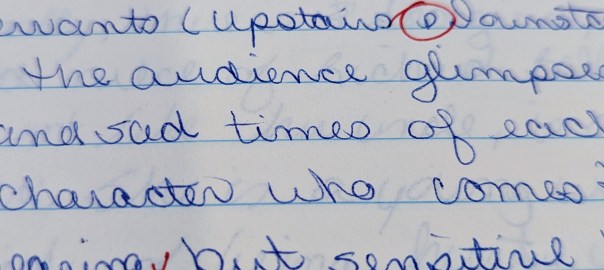 (upstairs e
the audience glimpse
and sad times of each
character who comes
but sensitive